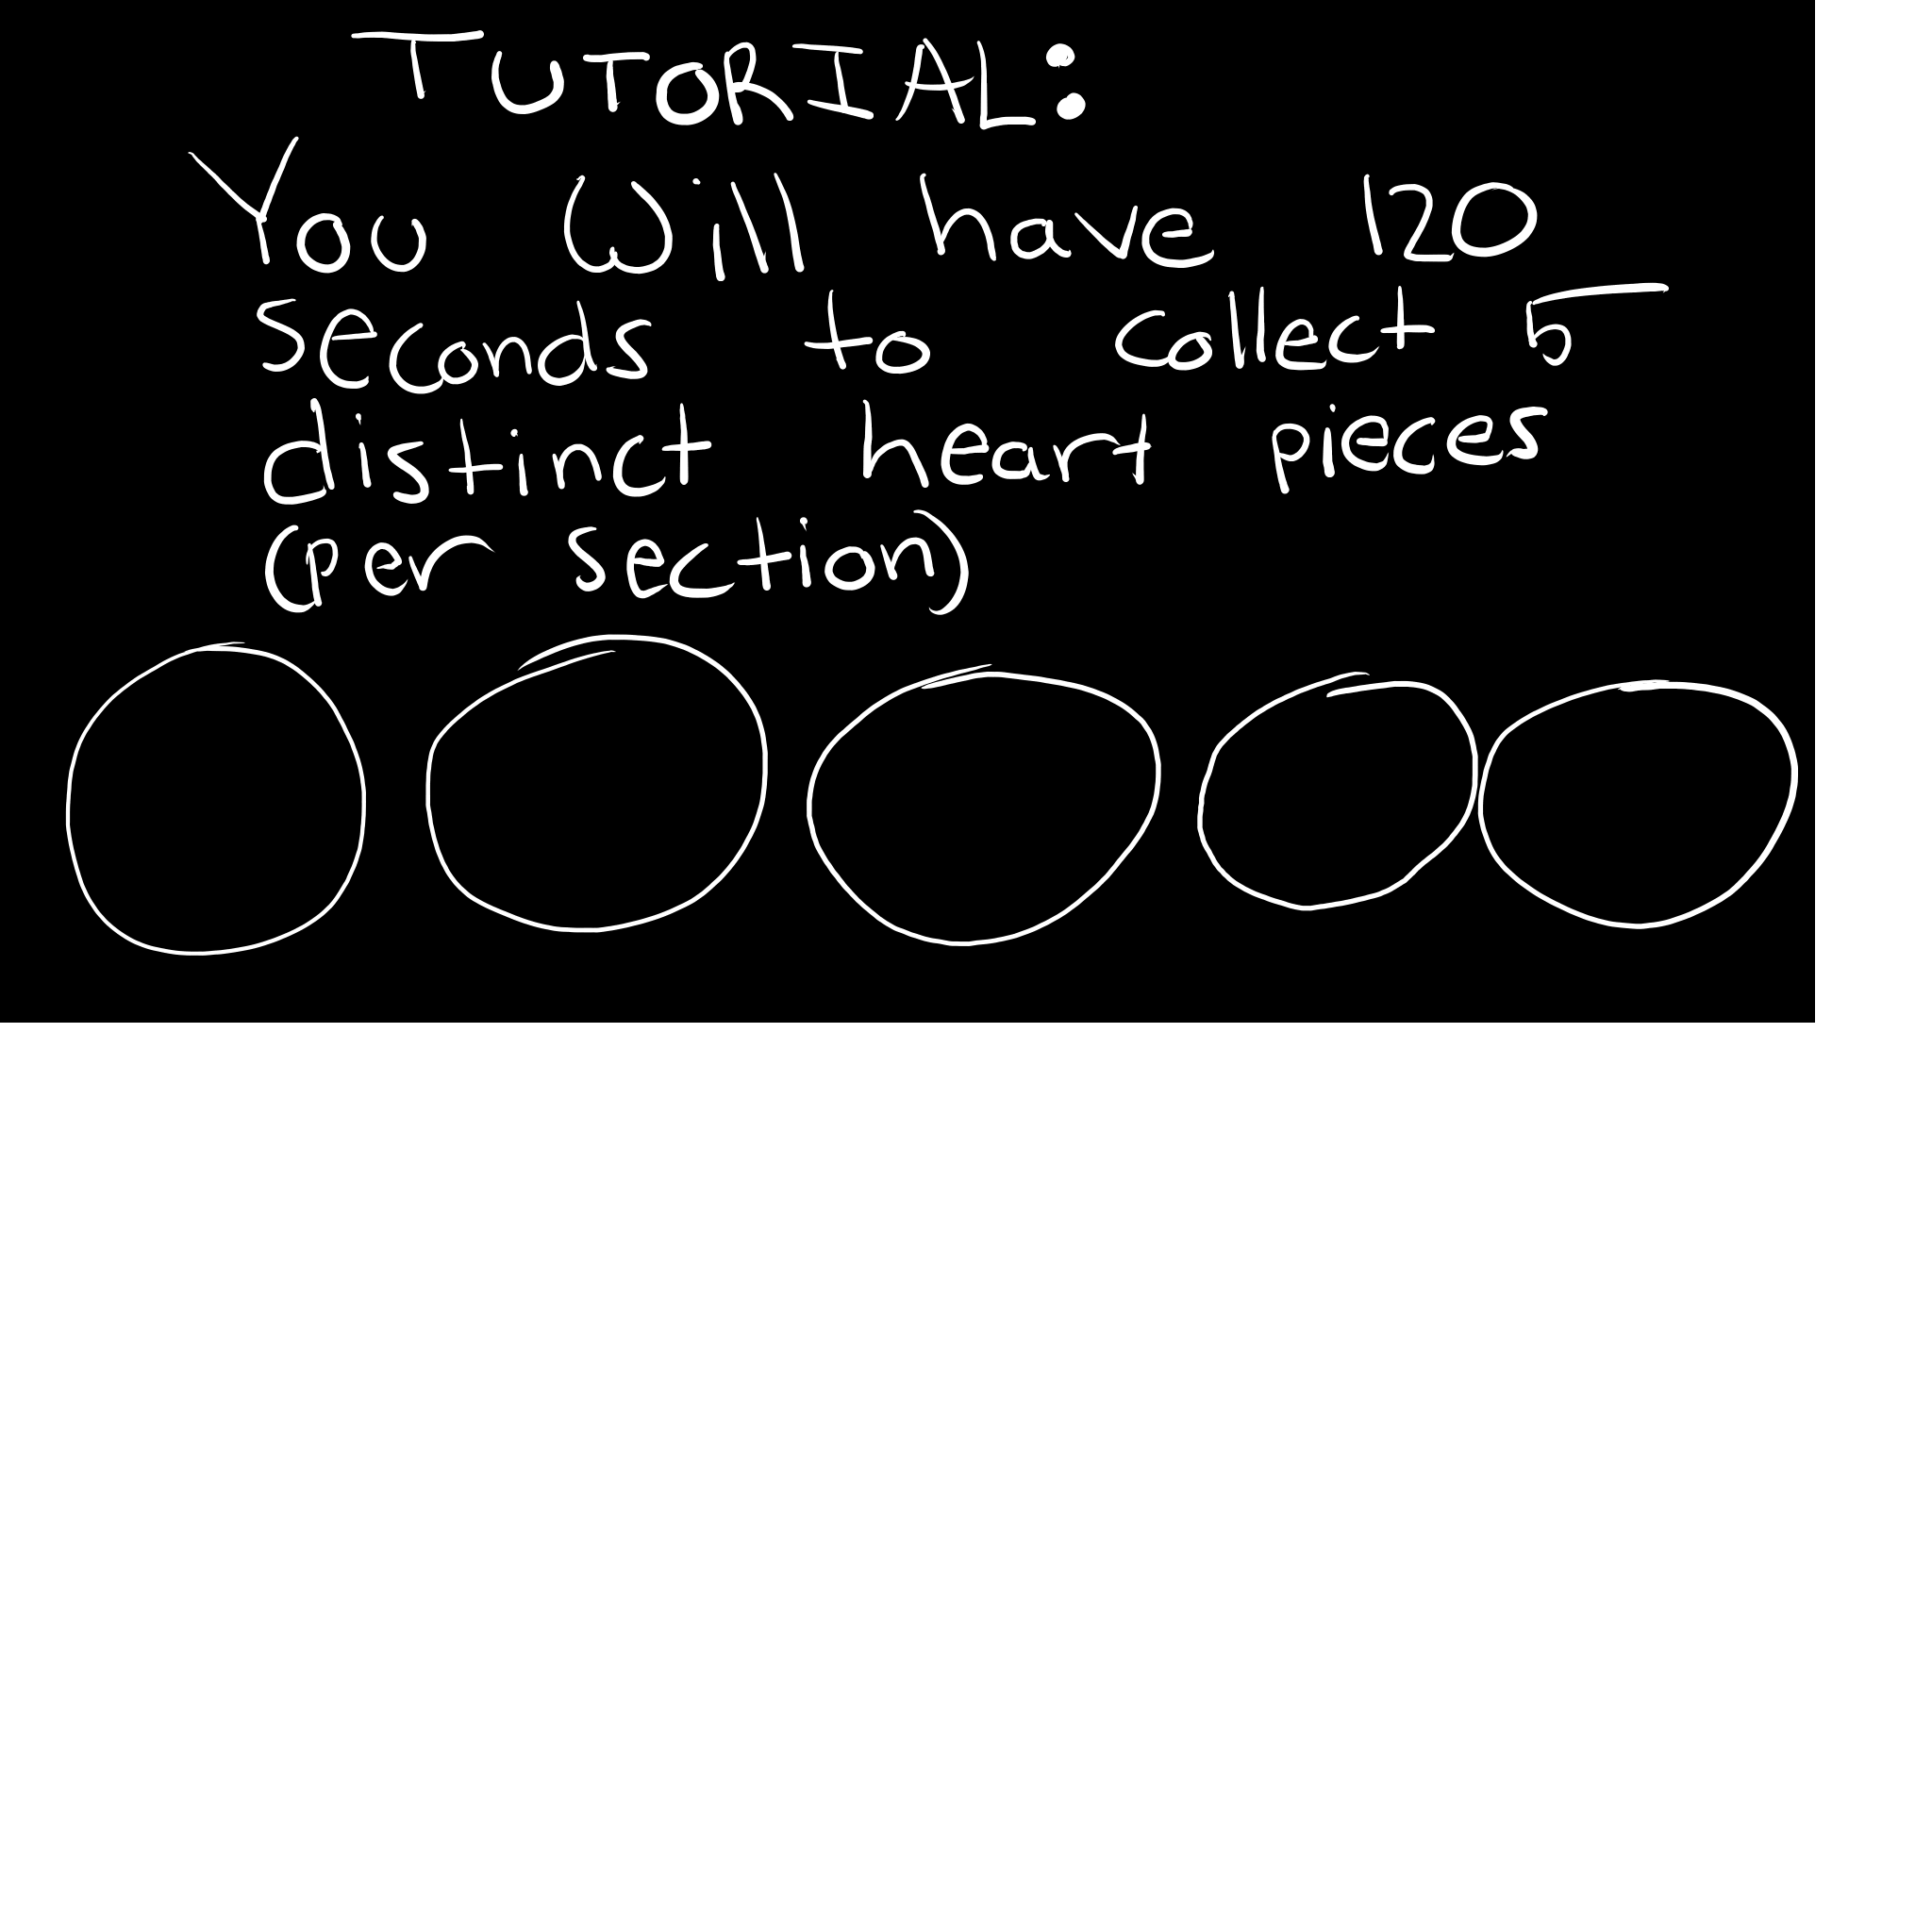 TUTORIAL:
You Will have 120
seconds to collect 5
distinct heart pieces
(per section)